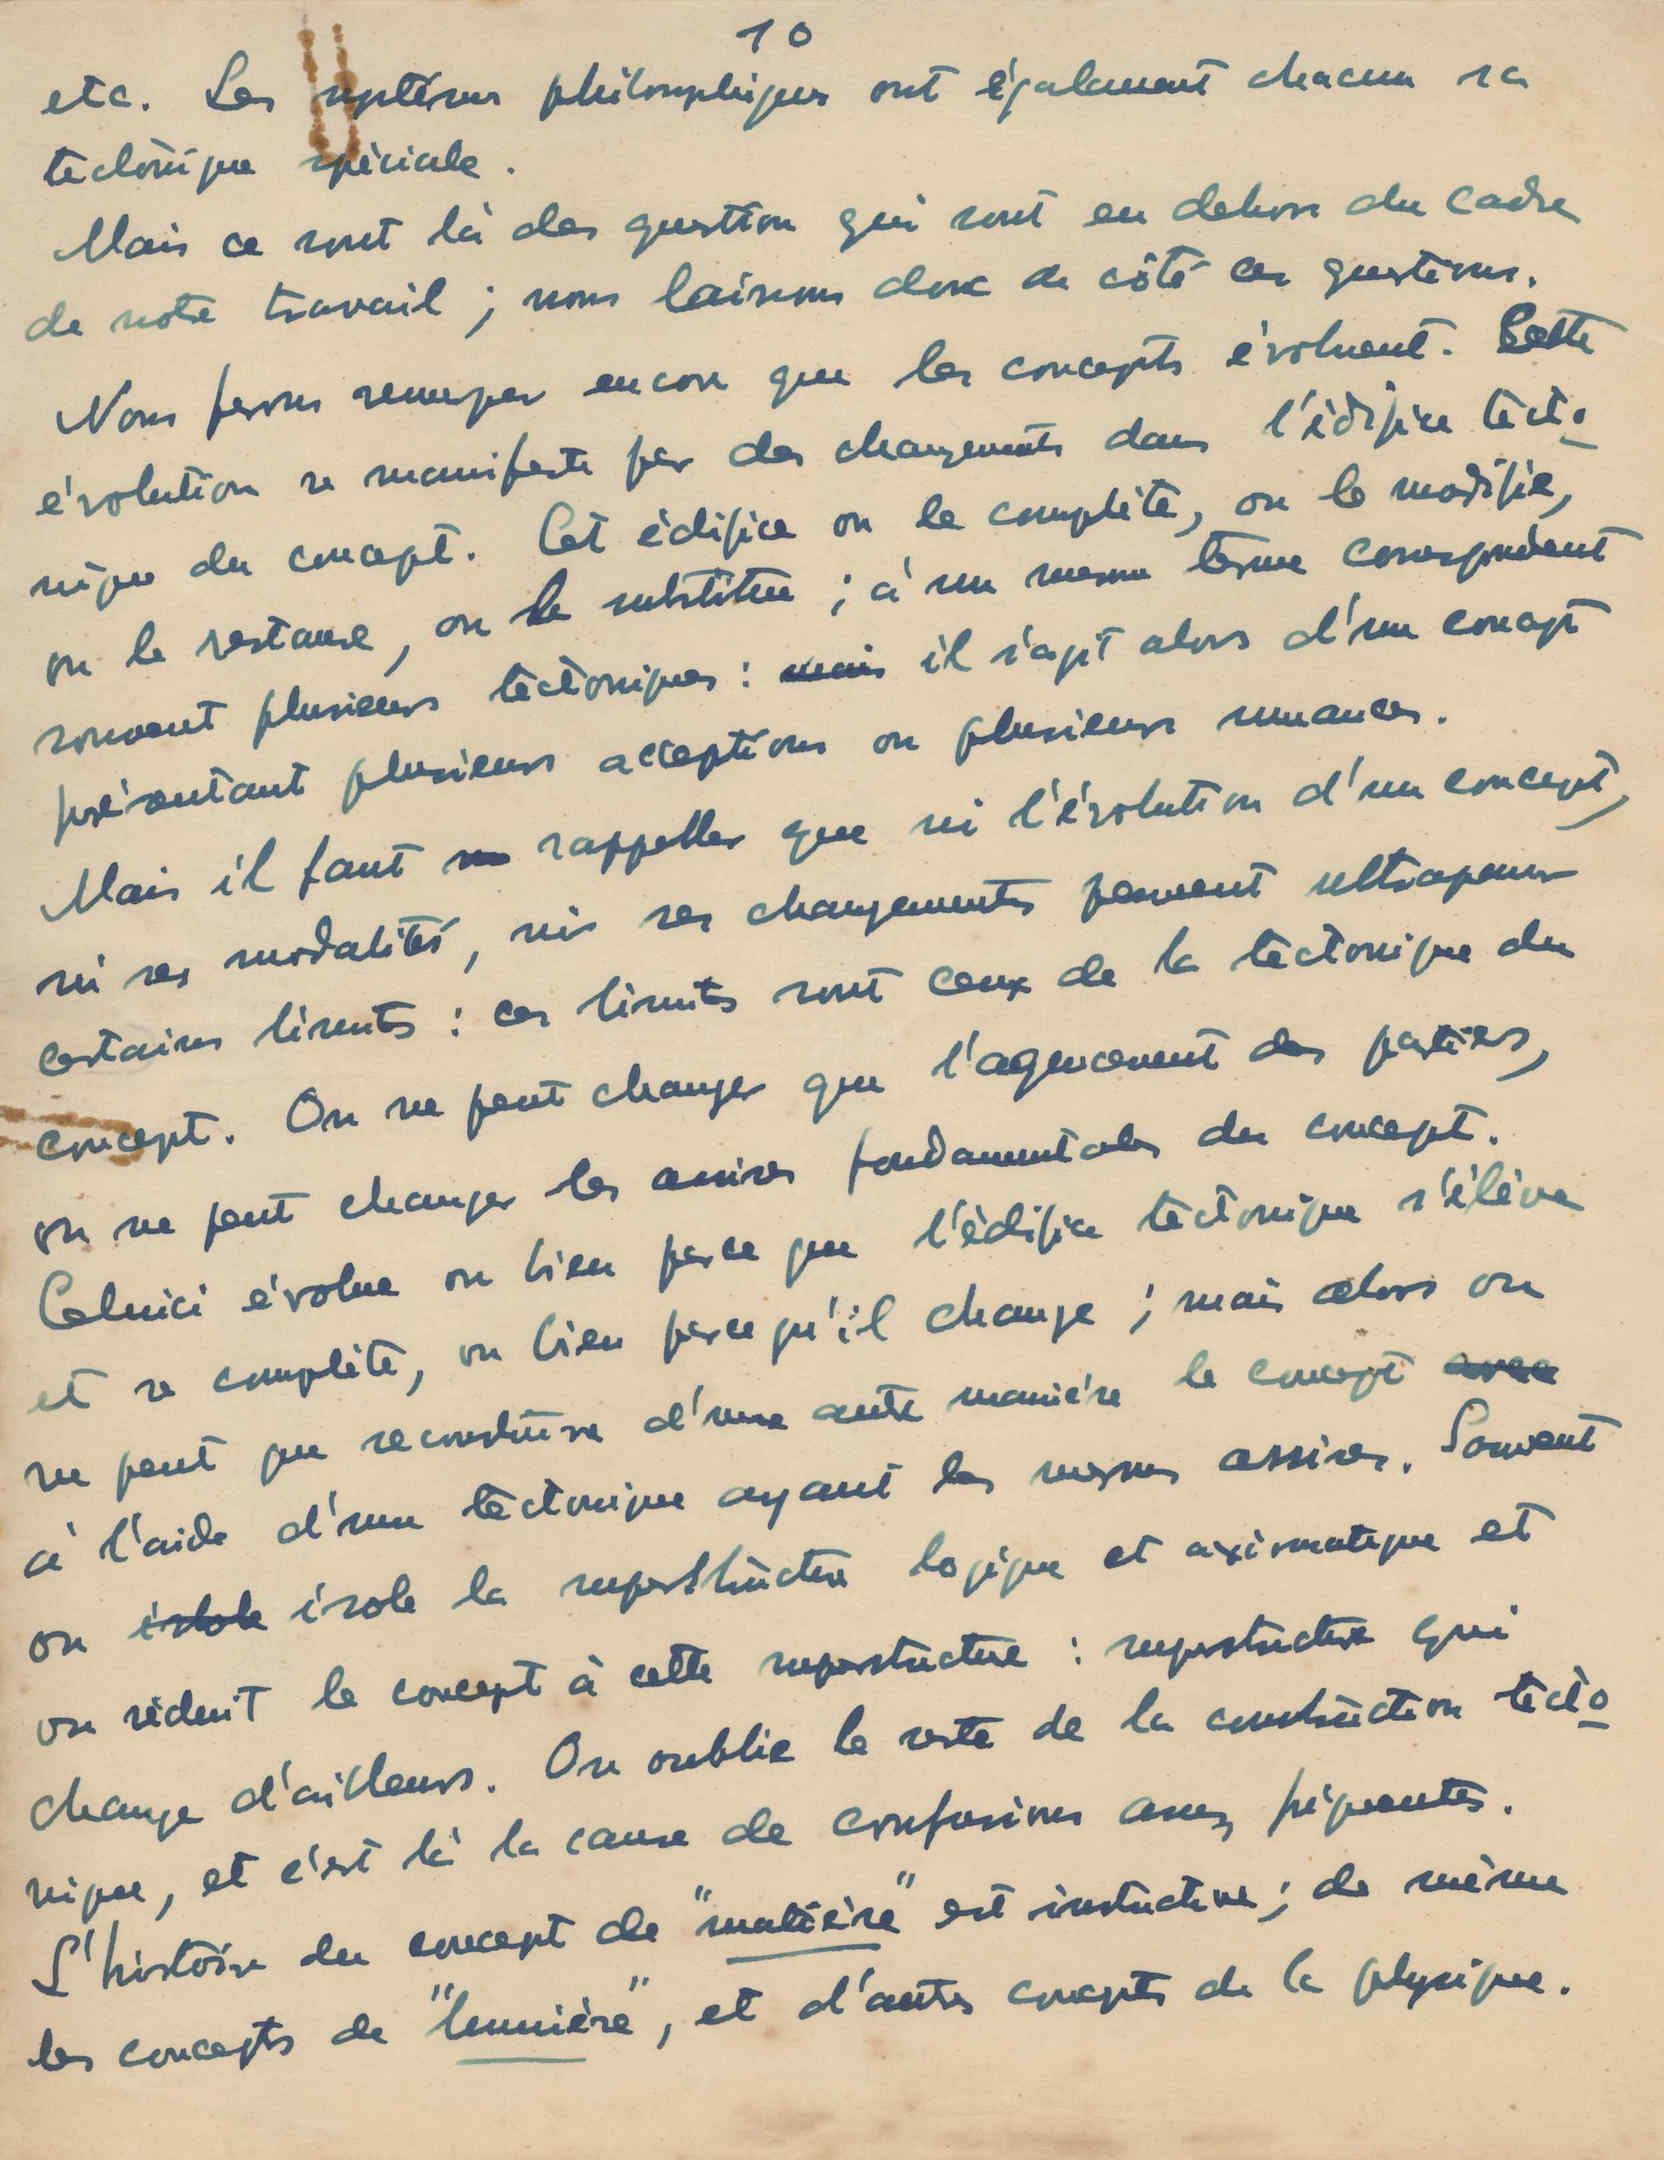 10
etc. Les systèmes philosophiques ont également chacun sa
tectonique spéciale.
Mais ce sont là des question qui sont en dehors du cadre
de notre travail ; nous laissons donc de côté ces questions.
Nous ferons remarquer encore que les concepts évoluent. Cette
évolution se manifeste par des changements dans l'édifice tecto
nique du concept. Cet édifice on le complète, on le modifie,
on le restaure, on le substitue ; à un meme terme correspondent
souvent plusieurs tectoniques : mais il s'agit alors d'un concept
présentant plusieurs acceptions ou plusieurs nuances.
Mais il faut se rappeller que ni l'évolution d'un concept,
ni ses modalités, ni ses changements peuvent ultrapasser
certains limites : ces limites sont ceux de la tectonique du
concept. On ne peut changer que l'agencement des parties,
on ne peut changer les assises fondamentales du concept.
Celuici évolue ou bien parce que l'édifice tectonique s'élève
et se complète, ou bien parce qu'il change ; mais alors on
ne peut que reconstruire d'une autre manière le concept avec
à l'aide d'une tectonique ayant les memes assises. Souvent
on isdole isole la superstructure logique et axiomatique et
on réduit le concept à cette superstructure : superstructure qui
change d'ailleurs. On oublie le reste de la construction tecto
nique, et c'est là la cause de confusions assez fréquentes.
L'histoire du concept de "matière" est instructive ; de même
les concepts de "lumière", et d'autres concepts de la physique.